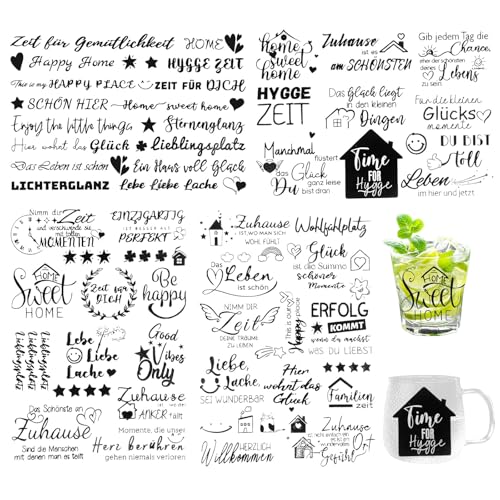 Zeit für Gemütlichkeit HOME
Happy Home HYGGE ZEIT
This is my HAPPY PLACE ZEIT FÜR DICH
SCHÖN HIER Home sweet home
Enjoy the little things Sternenglanz
Hier wohnt das Glück Lieblingsplatz
Das Leben ist schön Ein Haus voll Glück
LICHTERGLANZ Lebe Liebe Lache
home
sweet
home
Zuhause
ist es
am SCHÖNSTEN
HYGGE
ZEIT
Das Glück liegt
in den kleinen
Dingen
Manchmal
flüstert
das Glück
ganz leise
Du bist dran
Time
FOR
Hygge
Gib jedem Tag die
Chance,
der schönste
deines
Lebens
zu sein
Für die kleinen
Glücks
momente
DU BIST
toll
Leben
im hier und jetzt
Nimm dir
Zeit
und verschwende sie
mit tollen
MOMENTEN
EINZIGARTIG
IST BESSER ALS
PERFEKT
HOME
Sweet
HOME
Zeit für
DICH
Be
happy
Lieblingsplatz
Lieblingsplatz
Lieblingsplatz
Lebe
Liebe
Lache
Good
Vibes
Only
Das Schönste an
Zuhause
Sind die Menschen
mit denen man es teilt
Zuhause
ist da wo
der
ANKER fällt
Momente, die unser
Herz berühren
gehen niemals verloren
Zuhause
IST WO MAN SICH
WOHL FÜHLT
Wohlfühlplatz
Das
Leben
ist schön
Glück
ist die Summe
schöner
Momente
NIMM DIR
Zeit
DEINE TRÄUME
ZU LEBEN
This is our
happy
place
ERFOLG
KOMMT
wenn du machst
WAS DU LIEBST
Liebe,
Lache,
SEI WUNDERBAR
Hier
wohnt das
Glück
Familien
zeit
HERZLICH
Willkommen
Zuhause
ist nicht einfach ein
Ort
es ist ein
Gefühl
HOME
Sweet
HOME
Time
FOR
Hygge